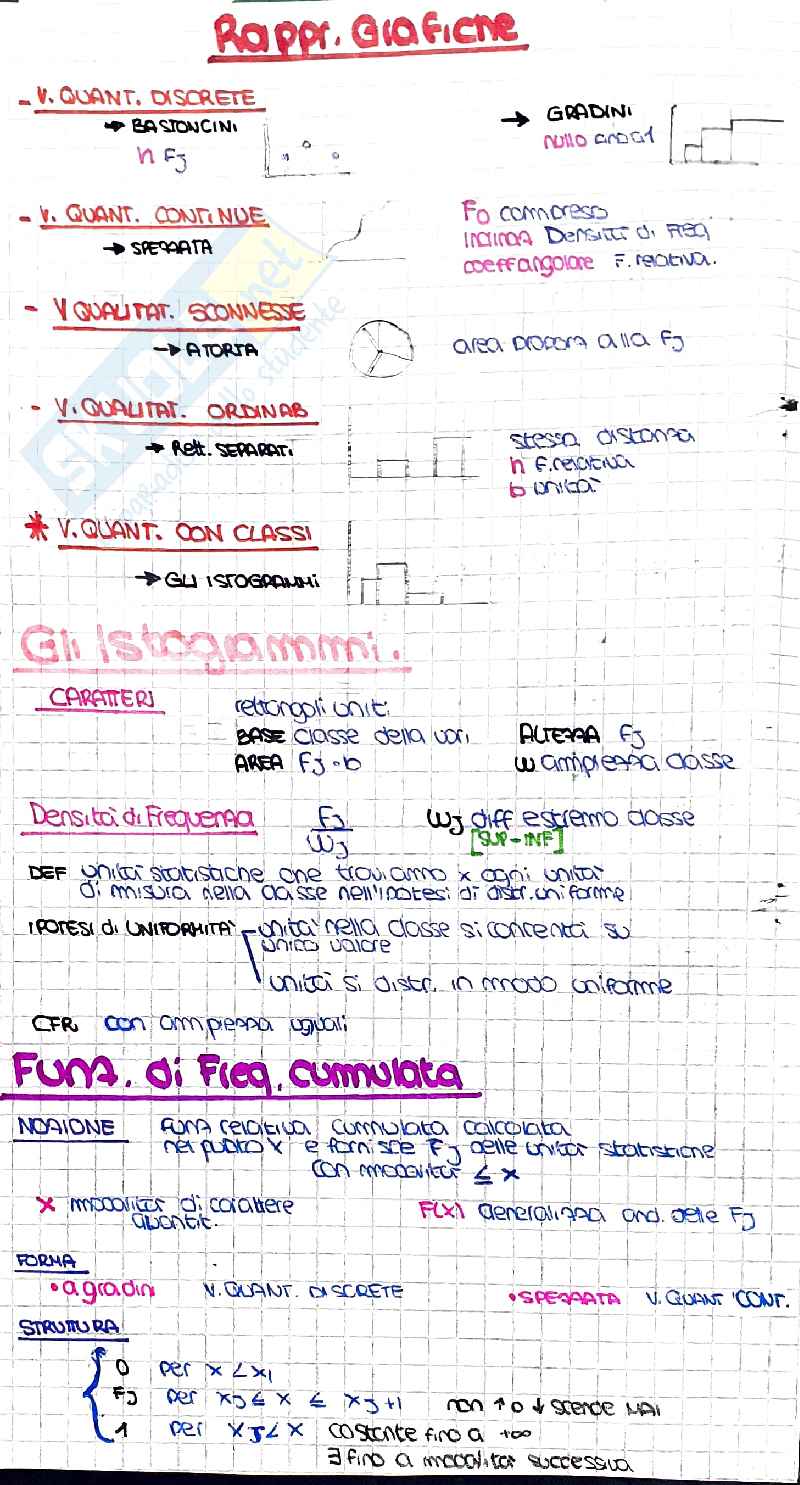 Rappr. Grafiche
- V. QUANT. DISCRETE
→ BASTONCINI
h Fj
→ GRADINI
nullo
- V. QUANT. CONTINUE
→ SPEZZATA
Fo compreso
inclinaz Densità di FREQ
coeff angolare F. relativa.
- V QUALITAT. SCONNESSE
→ A TORTA
area proporz alla Fj
- V. QUALITAT. ORDINAB
→ Rett. SEPARATI
stessa distanza
h f. relativa
b unità
* V. QUANT. CON CLASSI
→ GLI ISTOGRAMMI
Gli Istogrammi.
CARATTERI
rettangoli uniti
BASE classe della vari. ALTEZZA Fj
AREA Fj · b w ampiezza classe
Densità di Frequenza Fj / Wj Wj diff estremo classe
[SUP - INF]
DEF unità statistiche che troviamo x ogni unità
di misura nella classe nell'ipotesi di distr. uniforme
IPOTESI di UNIFORMITÀ - unità nella classe si concentra su
unico valore
unità si distr. in modo uniforme
CFR con ampiezza uguali
Funz. di Freq. cumulata
NOZIONE funz relativa cumulata calcolata
nel punto x e fornisce Fj delle unità statistiche
con modalità ≤ x
x modalità di carattere
quantit.
F(x) generalizza and. delle Fj
FORMA
• a gradini V. QUANT. DISCRETE
• SPEZZATA V. QUANT CONT.
STRUTTURA
0 per x < x1
Fj per xj ≤ x ≤ xj+1 non ↑ o ↓ scende MAI
1 per xj < x costante fino a +∞
∃ fino a modalità successiva